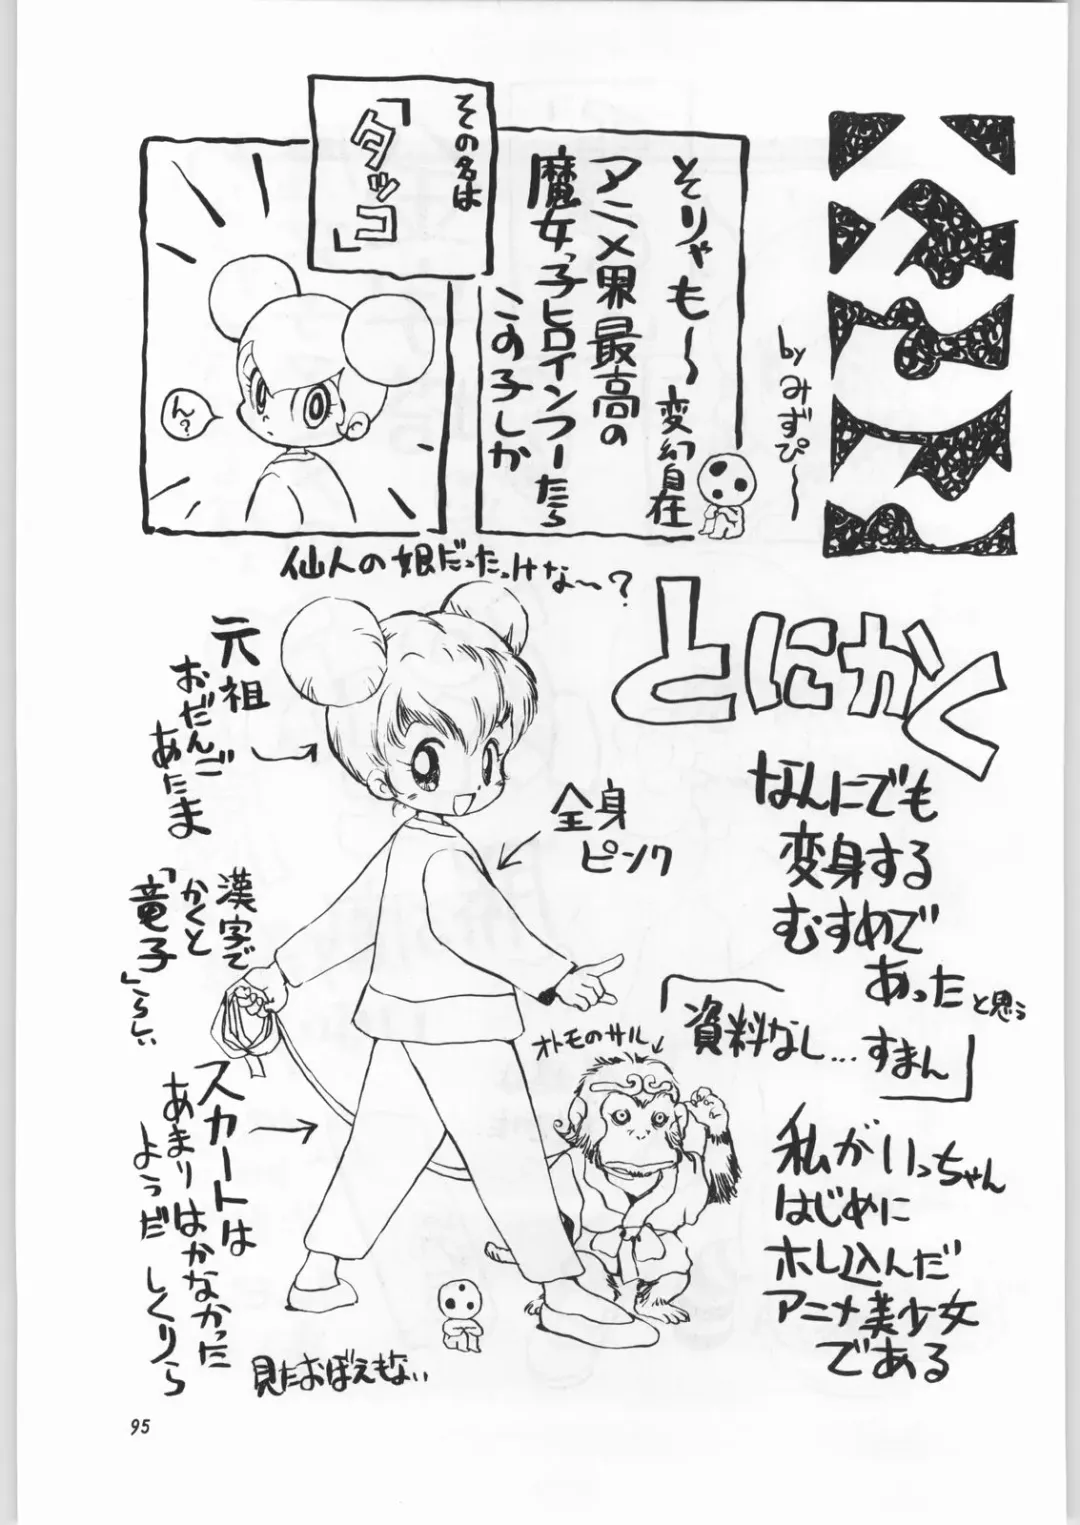 byみずぴ〜
そりゃも〜変幻自在
アニメ界最高の
魔女っ子ヒロインつーたら
この子しか
その名は
「タッコ」
ん?
仙人の娘だったっけな〜?
とにかく
なんにでも
変身する
むすめで
あったと思う
「資料なし...すまん」
私がいっちゃん
はじめに
ホレ込んだ
アニメ美少女
である
元祖
おだんご
あたま
全身
ピンク
漢字で
かくと
「竜子」らしい
オトモのサル
スカートは
あまりはかなかった
ようだ しくりら
見たおぼえもない
95